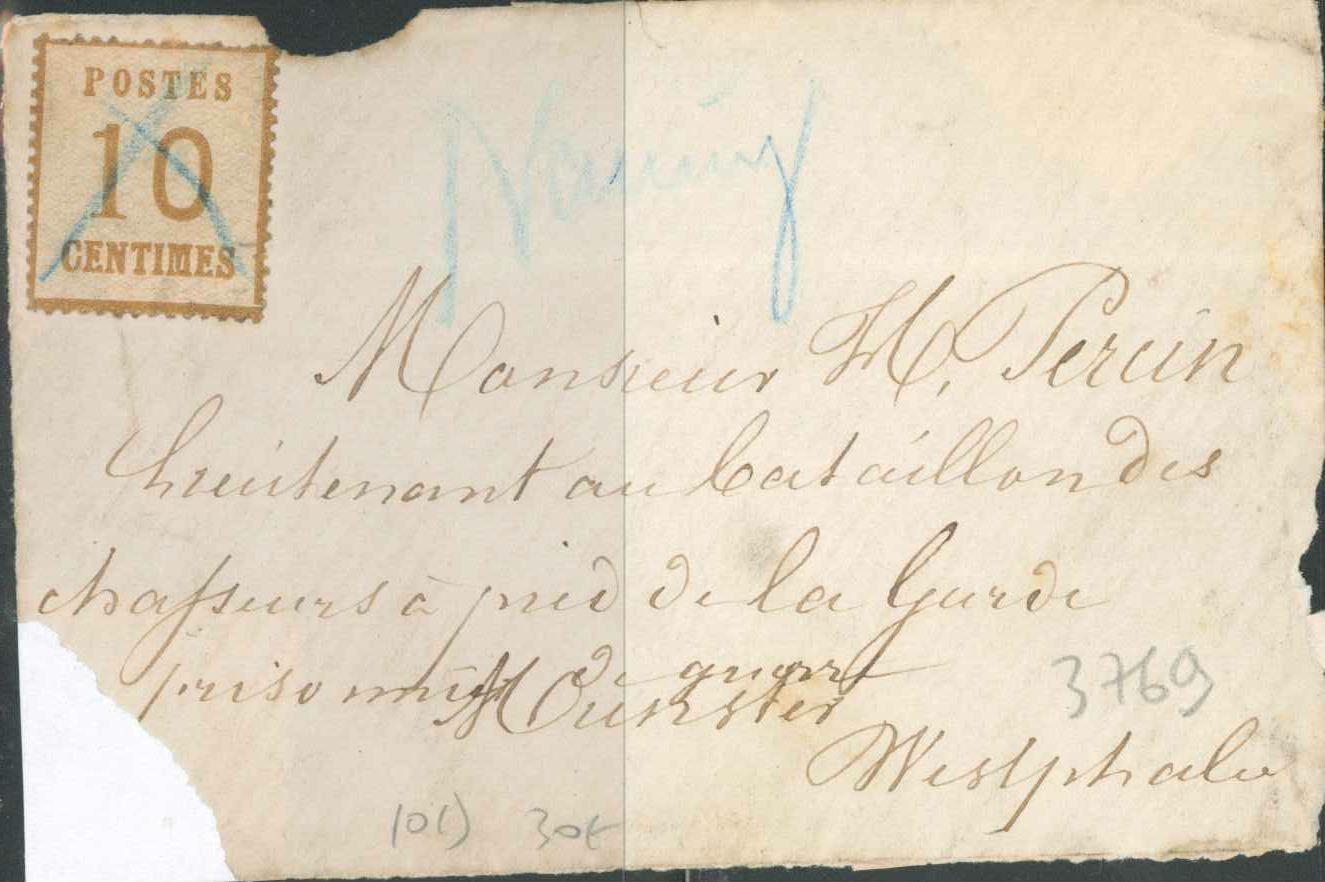 POSTES
10
CENTIMES
Nancy
Monsieur H. Percin
Lieutenant au bataillon des
chasseurs à pied de la Garde
prisonnier de guerre
Munster
Westphalie
3769
101) 30€